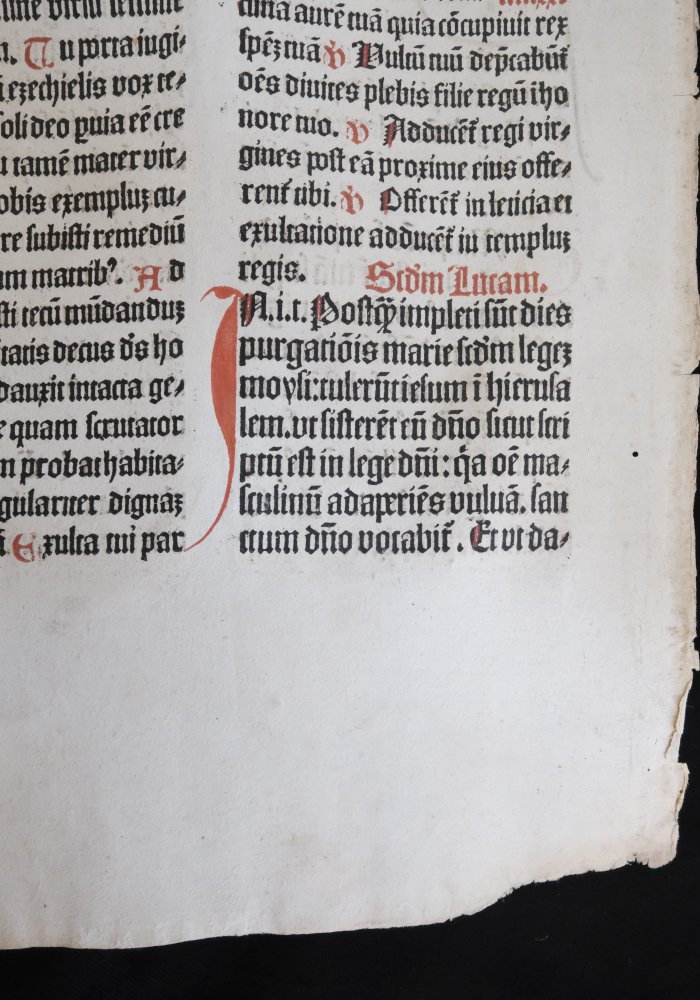 n. Tu porta iugi⸗
ezechielis vox te⸗
soli deo ꝑuia eē cre
u tamē mater vir⸗
obis exempluꝫ cu⸗
re subisti remediū
um matrib⁹. Ad
sti tecū mūdanduꝫ
itatis decus dʼs ho
dauxit intacta ge⸗
e quam scrutator
m probat habita⸗
gulariter dignaꝫ
Exulta tui par
aurē tuā quia cōcupiuit rex
spēꝫ tuā ꝟ Vultū tuū dep̄cabūt̉
oēs diuites plebis filie regū i ho
nore tuo. ꝟ Adducēt̉ regi vir⸗
gines post eā proxime eius offe⸗
rent̉ tibi. ꝟ Offerēt̉ in leticia et
exultatione adducēt̉ in templuꝫ
regis. Scd̄m Lucam.
IN.i.t. Postqꝫ̄ impleti sūt dies
purgatiōis marie scd̄m legeꝫ
moysi:tulerūt iesum ī hierusa
lem.vt sisterēt eū dn̄o sicut scri
ptū est in lege dn̄i: q̄a oē ma⸗
sculinū adaperiēs vuluā. san
ctum dn̄o vocabit̉. Et vt da⸗